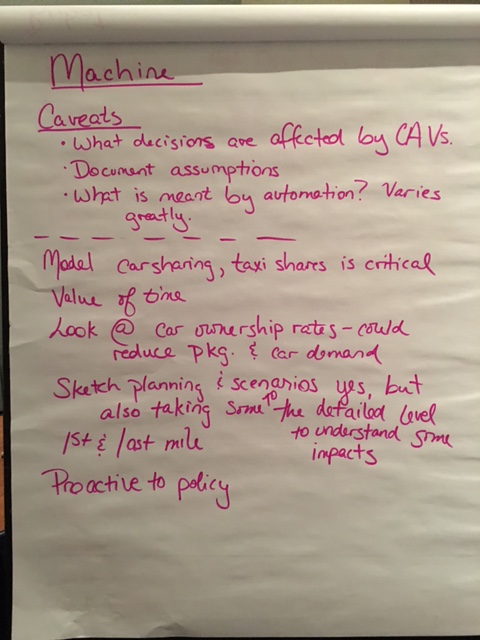 Machine
Caveats
· What decisions are affected by CAVs.
· Document assumptions
· What is meant by automation? Varies
greatly.
Model carsharing, taxi shares is critical
Value of time
Look @ car ownership rates - could
reduce pkg. & car demand
Sketch planning & scenarios yes, but
also taking some to the detailed level
to understand some
impacts
1st & last mile
Proactive to policy